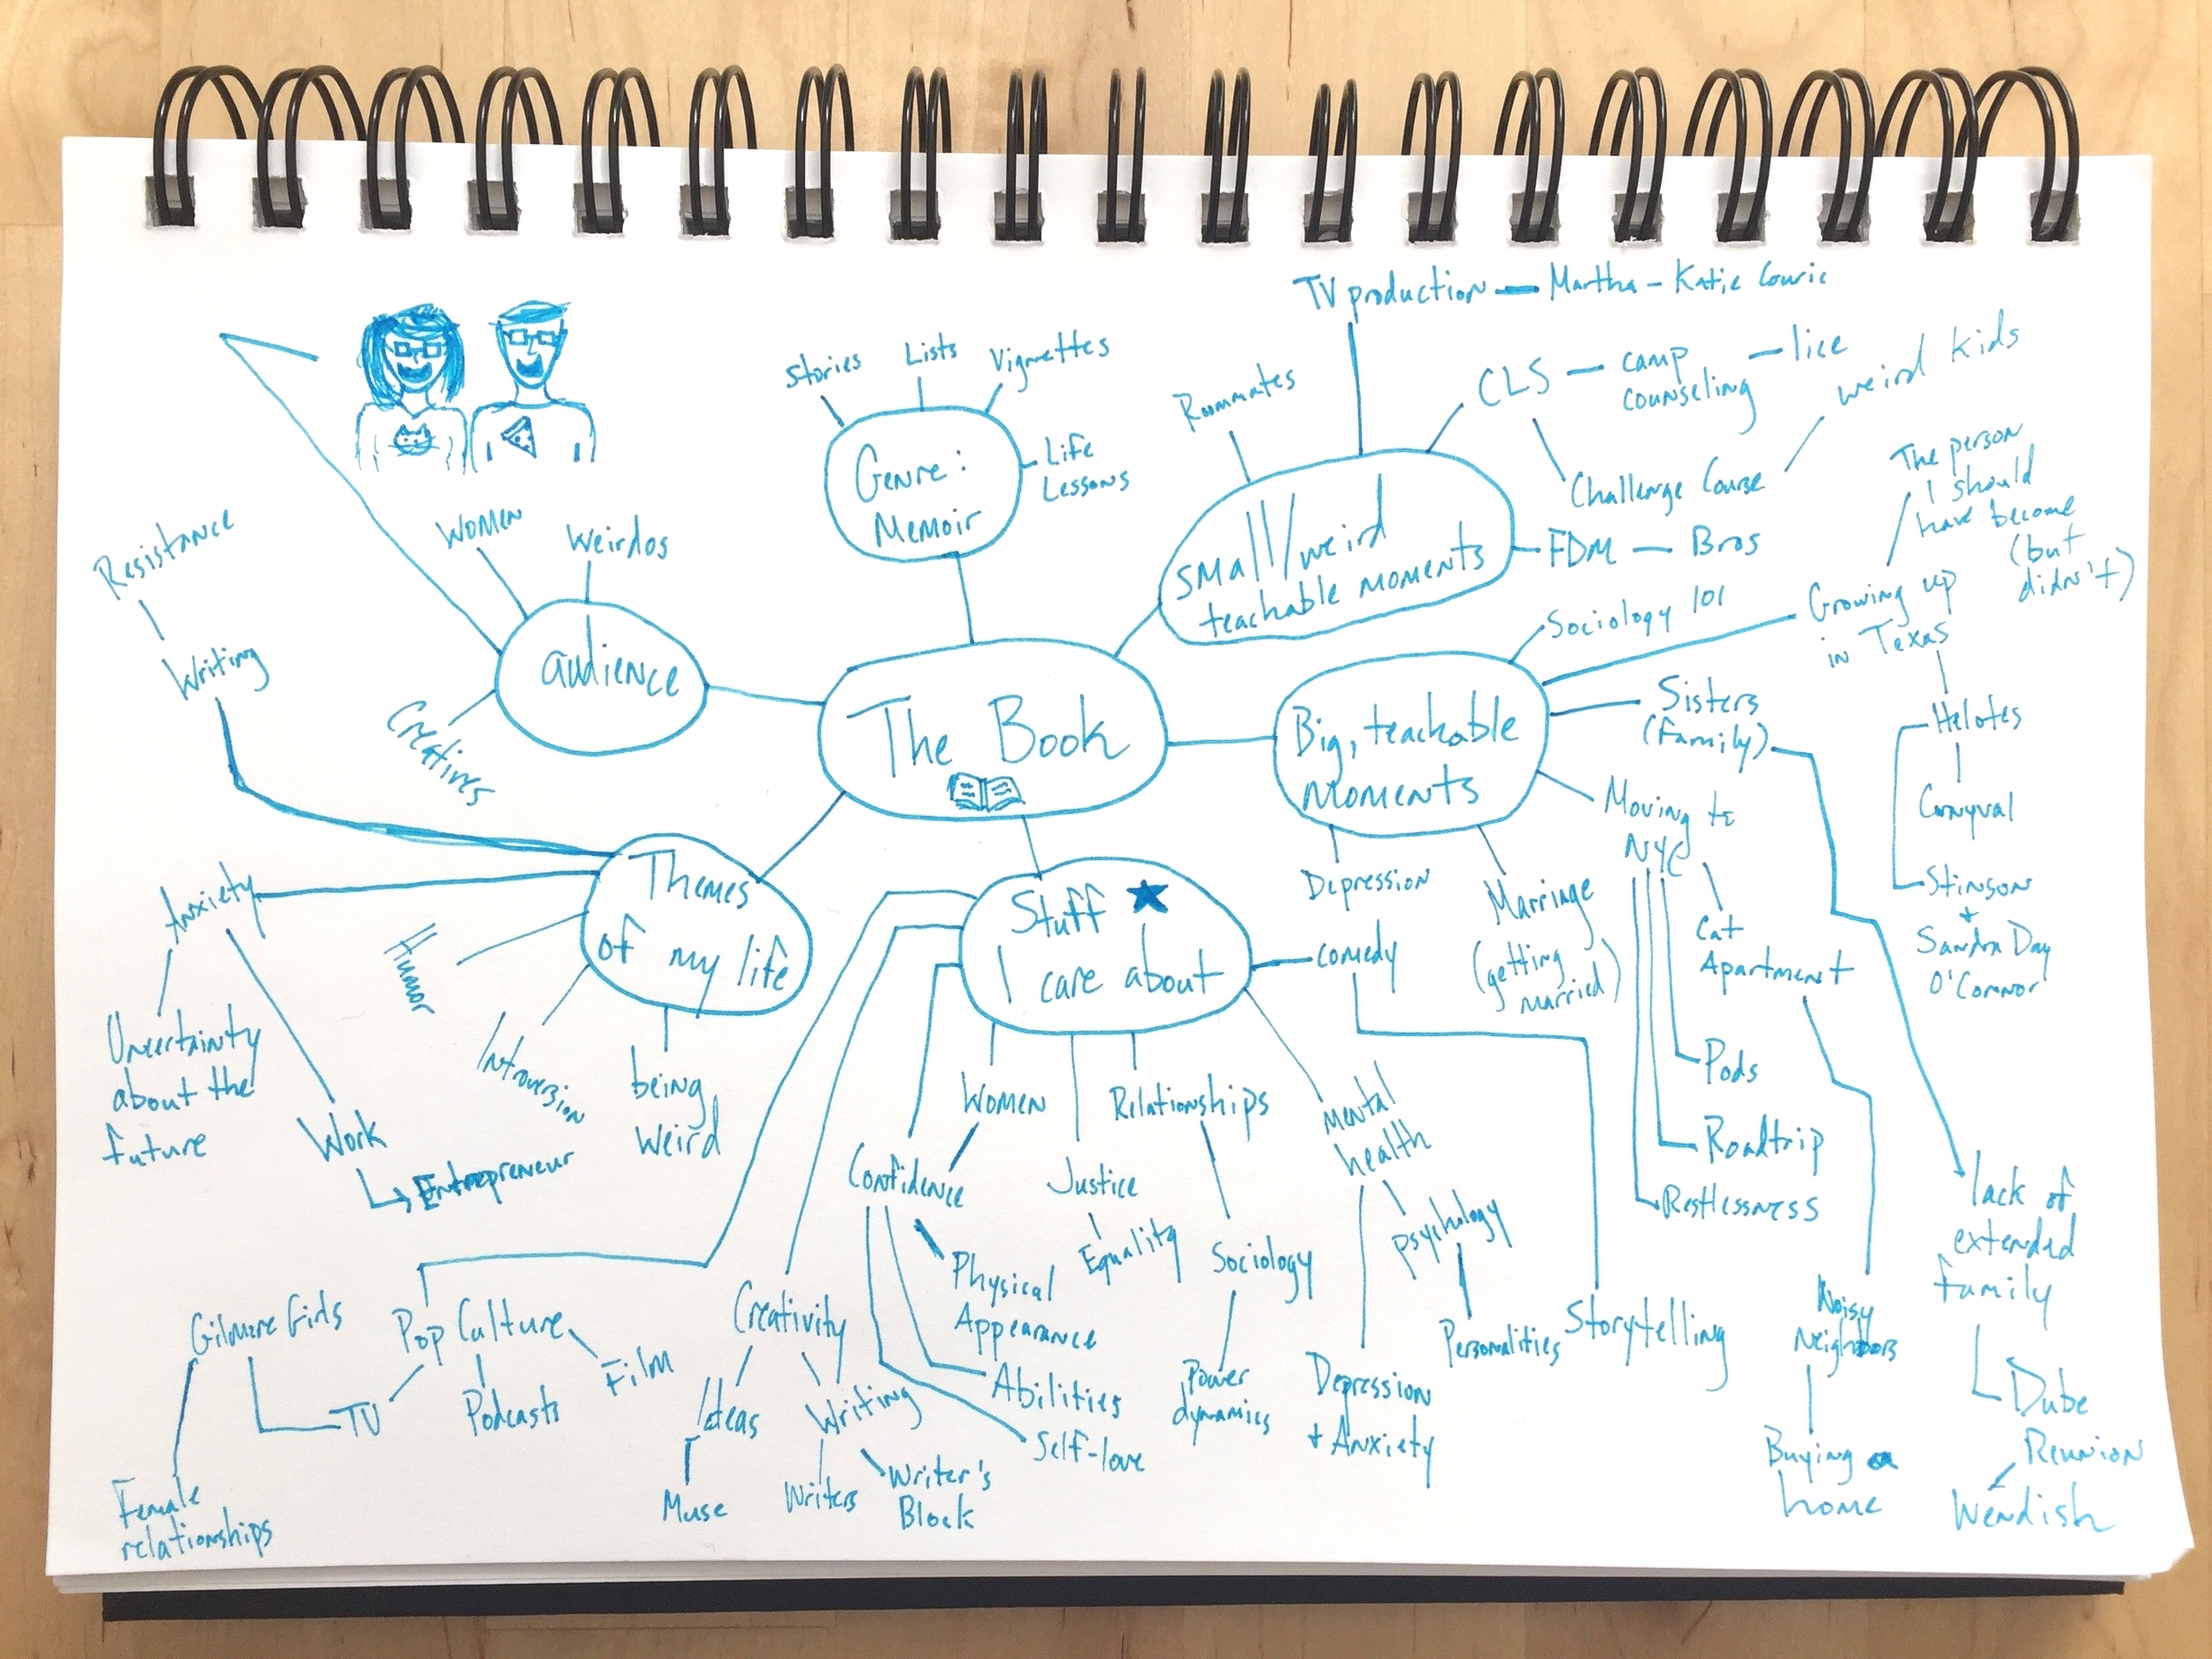 TV production — Martha - Katie Couric
Stories
Lists
Vignettes
Life
Lessons
Genre:
Memoir
Roommates
CLS — camp
counseling
— lice
weird kids
Challenge Course
small/weird
teachable moments
FDM — Bros
The person
I should
have become
(but
didn't)
Growing up
in Texas
Sociology 101
Women
Weirdos
audience
Creatives
Resistance
Writing
The Book
Big, teachable
moments
Sisters
(family)
Helotes
Cornyval
Stinson
+
Sandra Day
O'Connor
Moving to
NYC
Cat
Apartment
Pods
Roadtrip
Restlessness
Depression
Marriage
(getting
married)
lack of
extended
family
Dube
Reunion
Wendish
Noisy
Neighbors
Buying a
home
Themes
of my life
Anxiety
Humor
Introversion
being
weird
Uncertainty
about the
future
Work
Entrepreneur
Stuff
I care about
comedy
Storytelling
Women
Relationships
mental
health
Confidence
Justice
Equality
Sociology
psychology
Personalities
Physical
Appearance
Abilities
Self-love
Power
dynamics
Depression
+ Anxiety
Gilmore Girls
Pop Culture
Film
TV
Podcasts
Female
relationships
Creativity
Ideas
Writing
Muse
Writers
Writer's
Block